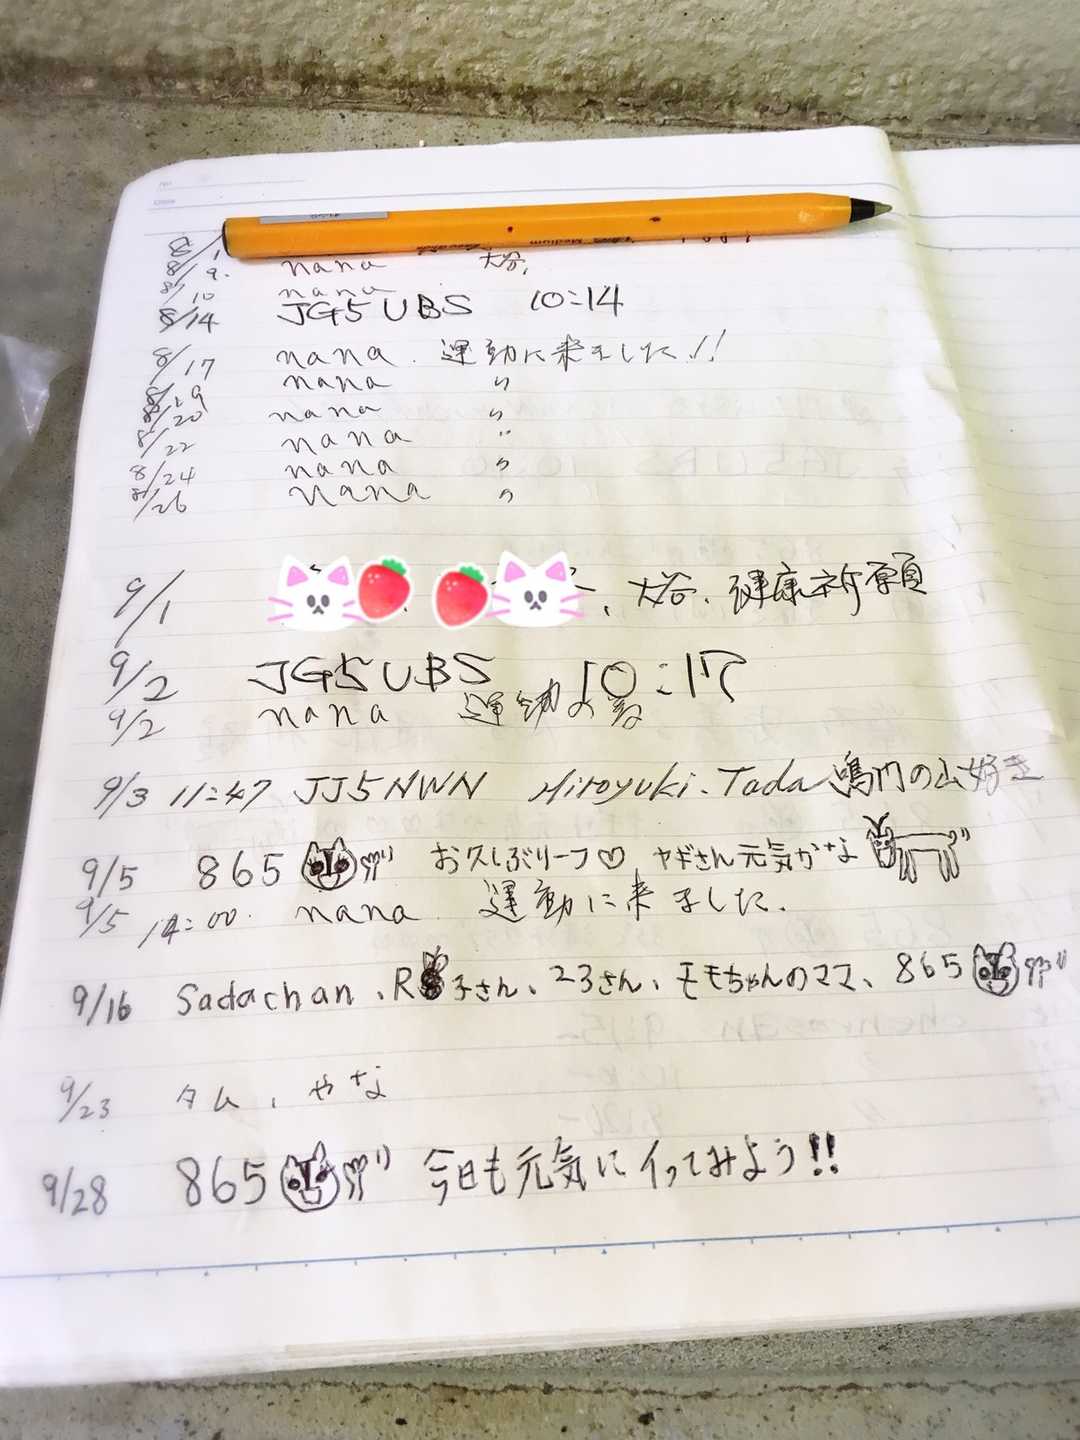 Medium
8/1
8/9. nana 大谷,
8/10 nana
8/14 JG5UBS 10:14
8/17 nana. 運動に来ました!!
8/19 nana 〃
8/20 nana 〃
8/22 nana 〃
8/24 nana 〃
8/26 nana 〃
9/1 、大谷、健康祈願
9/2 JG5UBS 10:17
9/2 nana 運動
9/3 11:47 JJ5NWN Hiroyuki.Tada 鳴門の山好き
9/5 865 お久しぶりーフ♡ ヤギさん元気かな
9/5 14:00. nana 運動に来ました.
9/16 Sadachan、R子さん、23さん、モモちゃんのママ、865
9/23 タム、やな
9/28 865 今日も元気にイってみよう!!